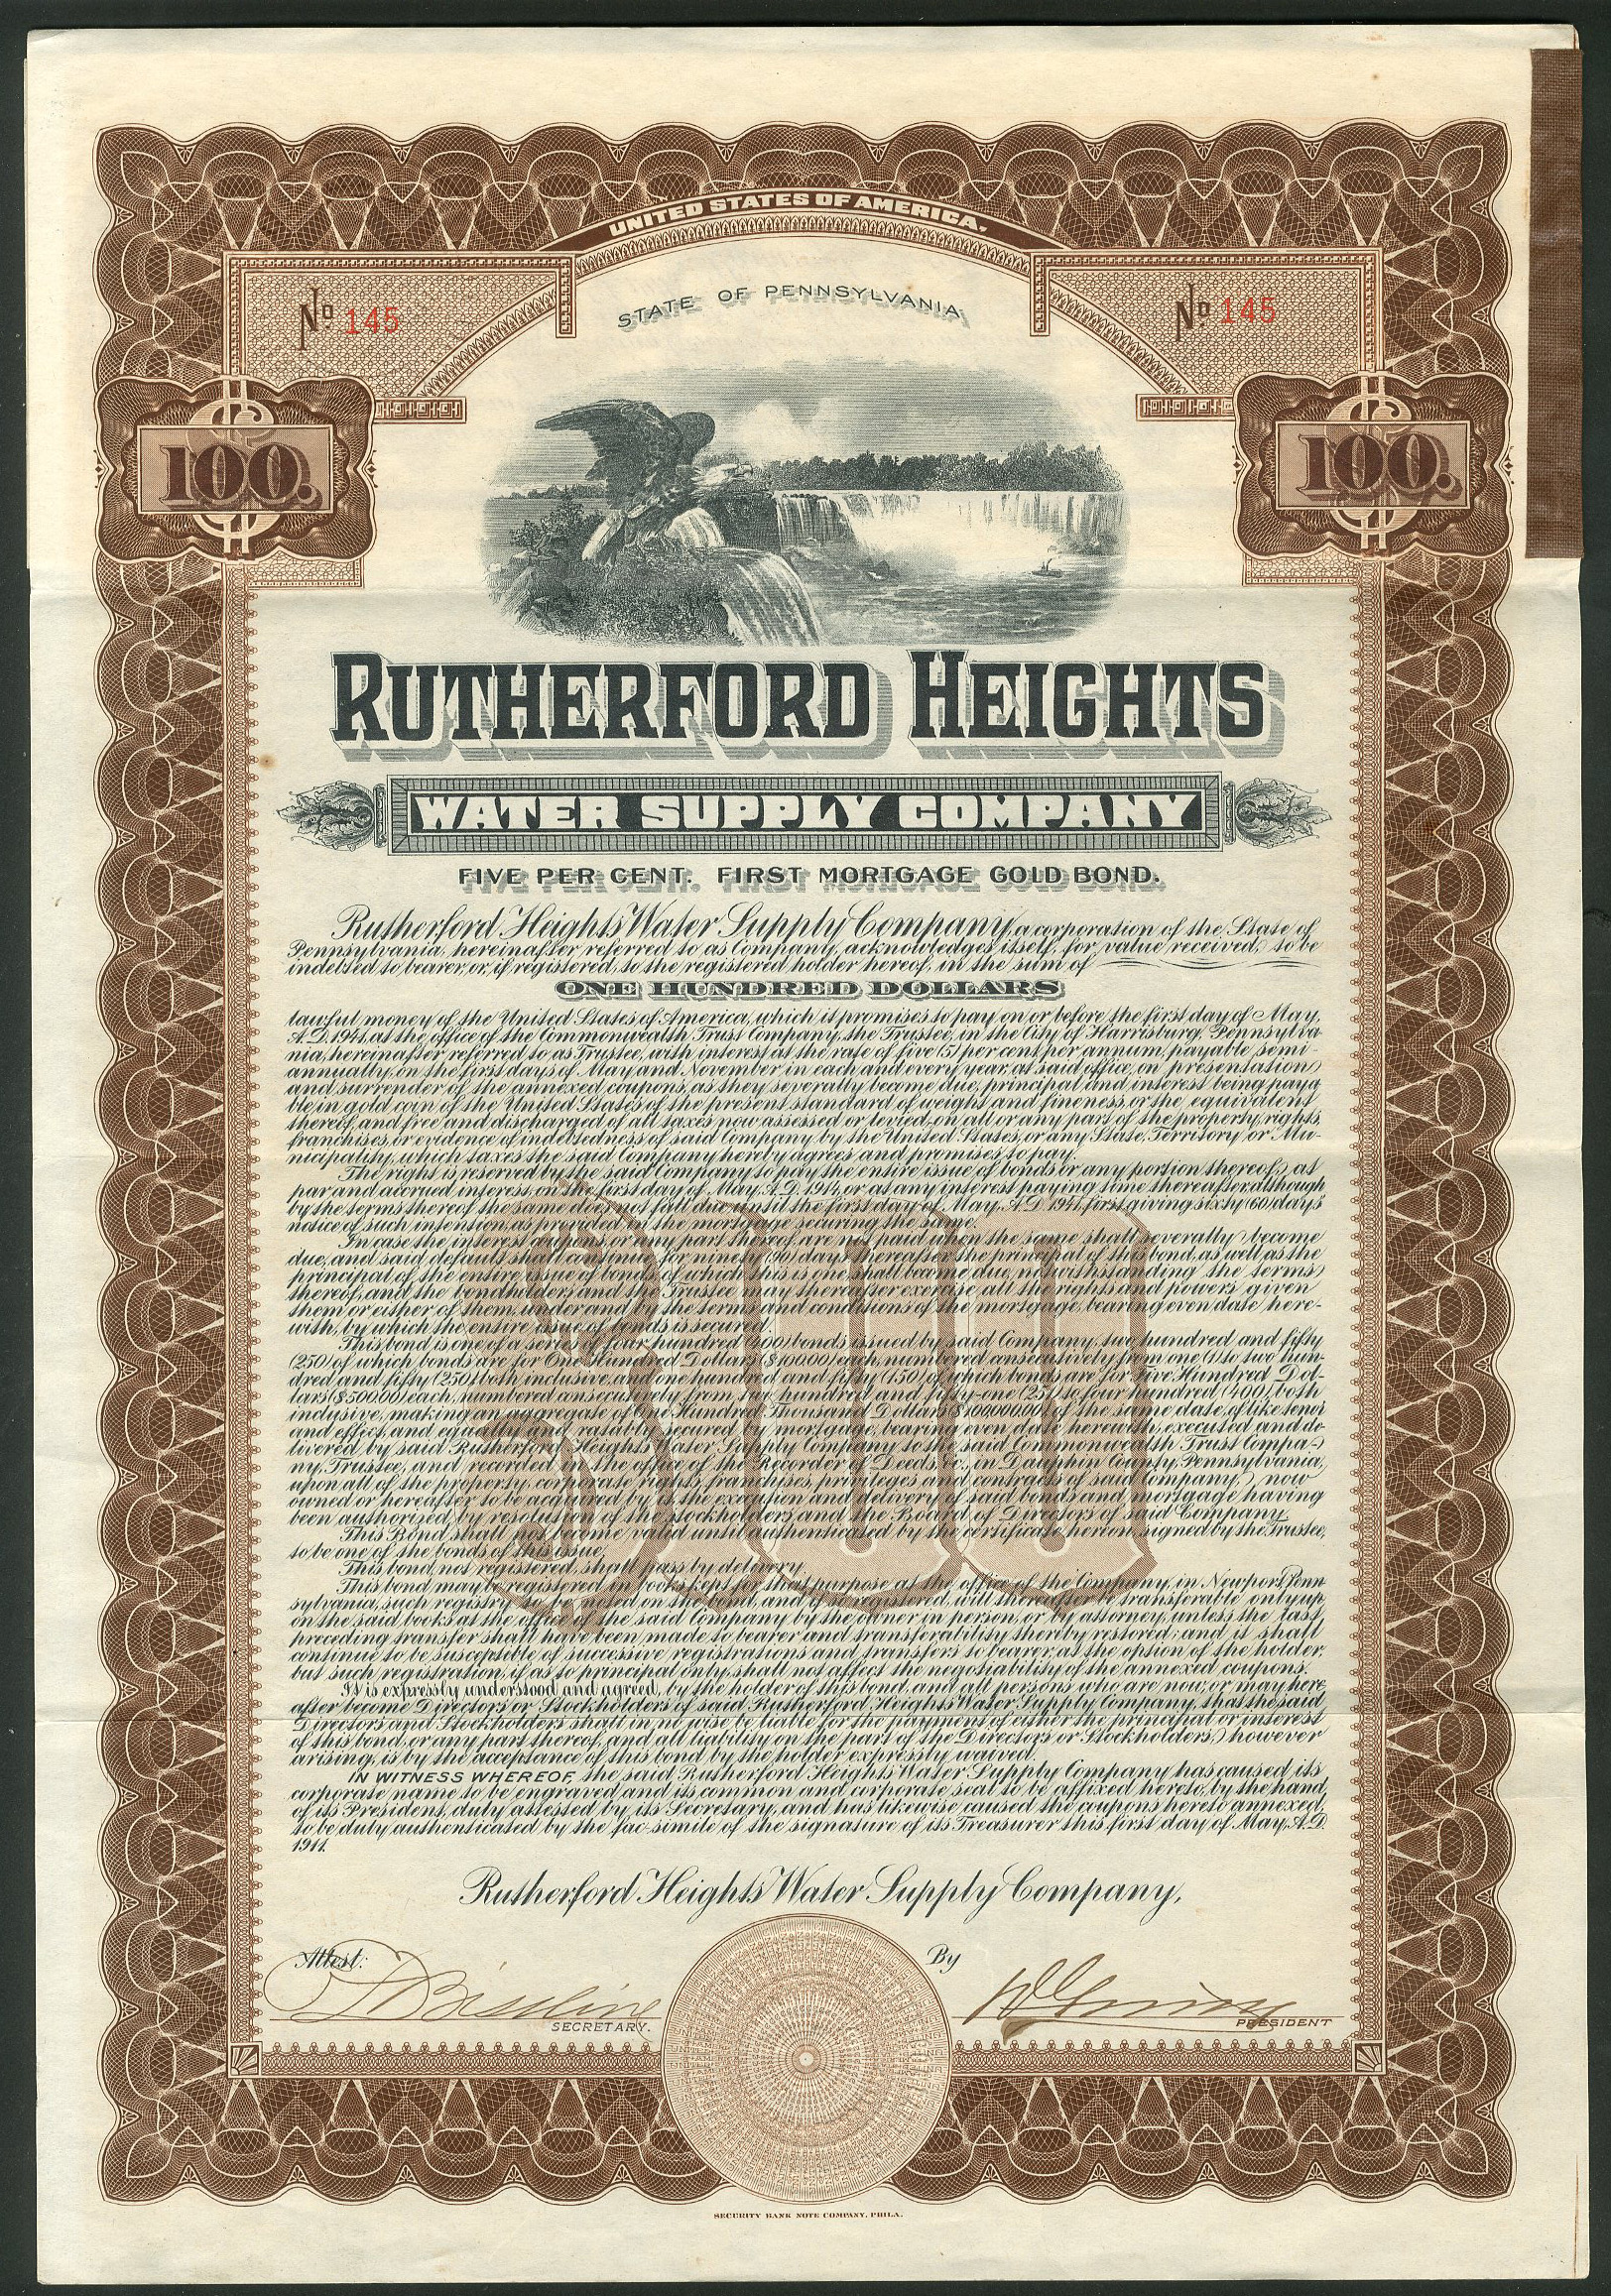 UNITED STATES OF AMERICA.
STATE OF PENNSYLVANIA
No 145
No 145
$100.
$100.
RUTHERFORD HEIGHTS
WATER SUPPLY COMPANY
FIVE PER CENT. FIRST MORTGAGE GOLD BOND.
Rutherford Heights Water Supply Company, a corporation of the State of
Pennsylvania, hereinafter referred to as Company, acknowledges itself, for value received, to be
indebted to bearer, or, if registered, to the registered holder hereof, in the sum of
ONE HUNDRED DOLLARS
lawful money of the United States of America, which it promises to pay on or before the first day of May,
A.D. 1941, at the office of the Commonwealth Trust Company, the Trustee, in the City of Harrisburg, Pennsylva-
nia, hereinafter referred to as Trustee, with interest at the rate of five (5) per cent per annum, payable semi-
annually, on the first days of May and November in each and every year, at said office, on presentation
and surrender of the annexed coupons, as they severally become due, principal and interest being paya
ble in gold coin of the United States of the present standard of weight and fineness, or the equivalent
thereof, and free and discharged of all taxes now assessed or levied, on all or any part of the property, rights,
franchises, or evidence of indebtedness of said Company by the United States, or any State, Territory or Mu-
nicipality, which taxes the said Company hereby agrees and promises to pay.
The right is reserved by the said Company to pay the entire issue of bonds or any portion thereof, at
par and accrued interest, on the first day of May, A.D. 1914, or at any interest paying time thereafter, although
by the terms thereof the same does not fall due until the first day of May, A.D. 1941, first giving sixty (60) days
notice of such intention, as provided in the mortgage securing the same.
In case the interest coupons, or any part thereof, are not paid when the same shall severally become
due, and said default shall continue for ninety (90) days thereafter, the principal of this bond, as well as the
principal of the entire issue of bonds, of which this is one, shall become due, notwithstanding the terms
thereof, and the bondholders and the Trustee may thereafter exercise all the rights and powers given
them or either of them, under and by the terms and conditions of the mortgage, bearing even date here-
with, by which the entire issue of bonds is secured.
This bond is one of a series of four hundred (400) bonds issued by said Company, two hundred and fifty
(250) of which bonds are for One Hundred Dollars ($100.00) each, numbered consecutively from one (1) to two hun-
dred and fifty (250) both inclusive, and one hundred and fifty (150) of which bonds are for Five Hundred Dol-
lars ($500.00) each, numbered consecutively from two hundred and fifty-one (251) to four hundred (400), both
inclusive, making an aggregate of One Hundred Thousand Dollars ($100,000.00) of the same date, of like tenor
and effect, and equally and ratably secured by mortgage, bearing even date herewith, executed and de-
livered by said Rutherford Heights Water Supply Company to the said Commonwealth Trust Compa-
ny, Trustee, and recorded in the office of the Recorder of Deeds, &c., in Dauphin County, Pennsylvania,
upon all of the property, corporate rights, franchises, privileges and contracts of said Company, now
owned or hereafter to be acquired by it, the execution and delivery of said bonds and mortgage having
been authorized, by resolution of the stockholders and the Board of Directors of said Company.
This Bond shall not become valid until authenticated by the certificate hereon, signed by the Trustee,
to be one of the bonds of this issue.
This bond, not registered, shall pass by delivery.
This bond may be registered in books kept for that purpose at the office of the Company, in Newport, Penn-
sylvania, such registry to be noted on the bond, and if registered, will thereafter be transferable only up-
on the said books at the office of the said Company by the owner in person, or by attorney, unless the last
preceding transfer shall have been made to bearer and transferability thereby restored; and it shall
continue to be susceptible of successive registrations and transfers to bearer, at the option of the holder,
but such registration, if as to principal only, shall not affect the negotiability of the annexed coupons.
It is expressly understood and agreed, by the holder of this bond, and all persons who are now, or may here-
after become Directors or Stockholders of said Rutherford Heights Water Supply Company, that the said
Directors and Stockholders shall in no wise be liable for the payment of either the principal or interest
of this bond, or any part thereof, and all liability on the part of the Directors or Stockholders, however
arising, is by the acceptance of this bond by the holder expressly waived.
IN WITNESS WHEREOF, the said Rutherford Heights Water Supply Company has caused its
corporate name to be engraved and its common and corporate seal to be affixed hereto, by the hand,
of its President, duly attested by its Secretary, and has likewise caused the coupons hereto annexed,
to be duly authenticated by the fac-simile of the signature of its Treasurer this first day of May, A.D.
1911.
$100
Rutherford Heights Water Supply Company,
Attest:
By
SECRETARY.
PRESIDENT
SECURITY BANK NOTE COMPANY, PHILA.